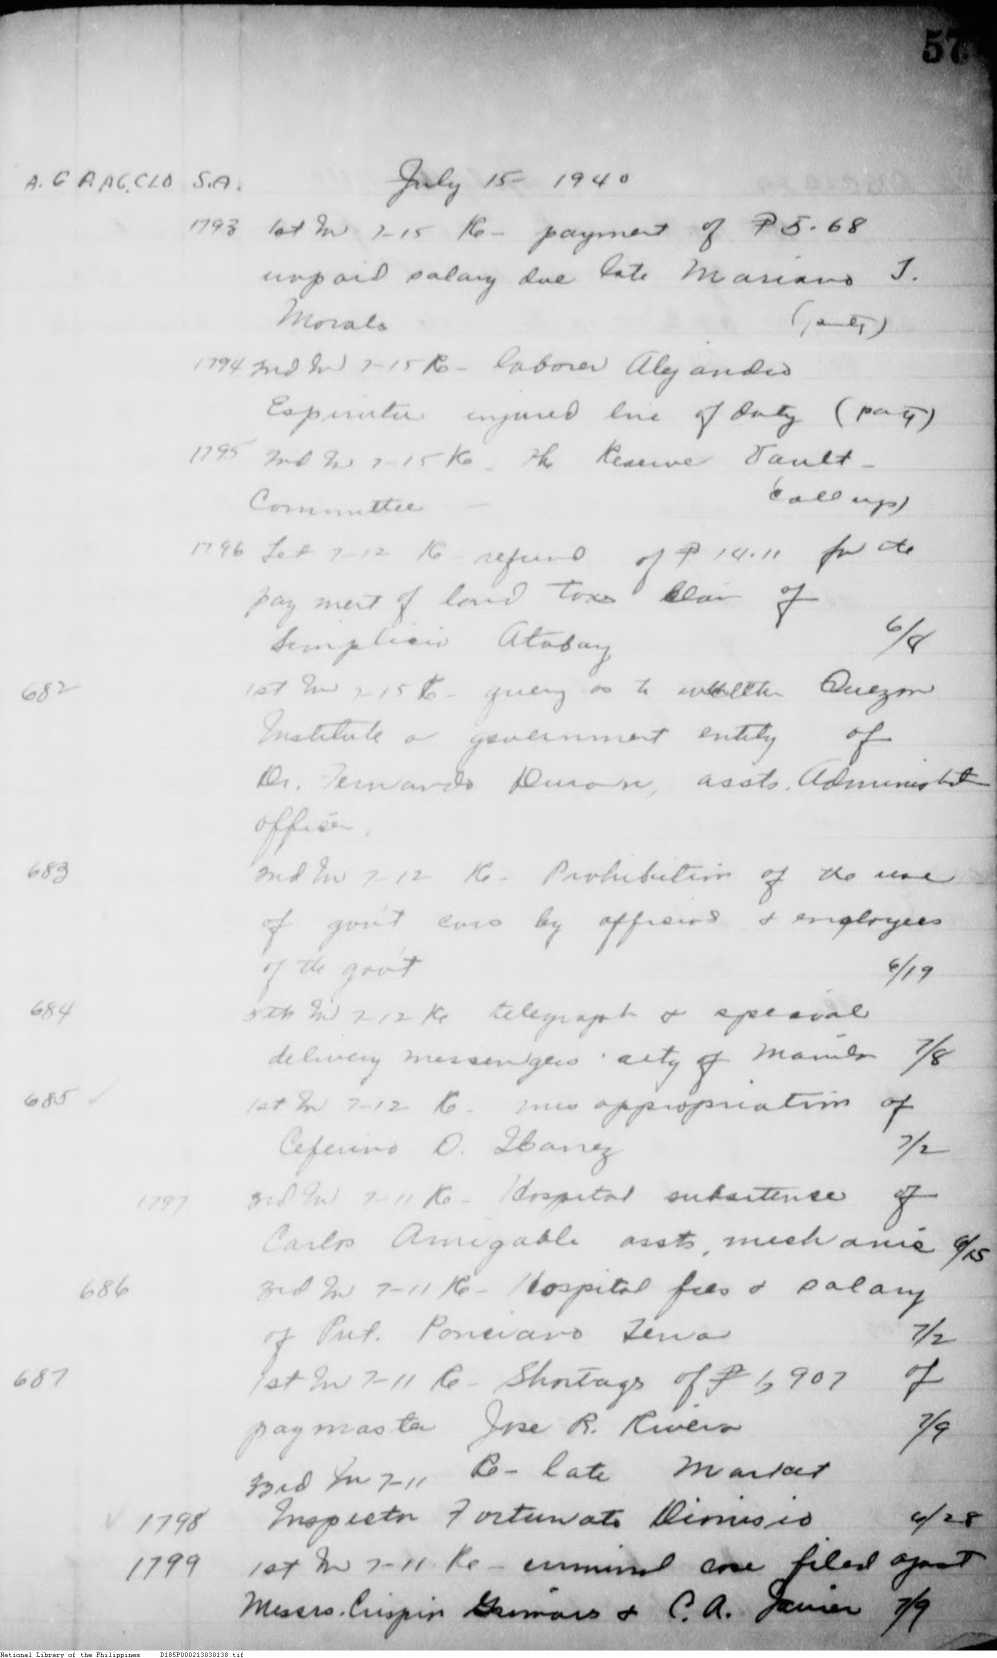 57
A.G. A.AG.CLD S.A. July 15 - 1940
1793 1st In 7-15 Re- payment of ₱5.68
unpaid salary due late Mariano J.
Morales (party)
1794 2nd In 7-15 Re- laborer Alejandro
Espiritu injured line of duty (party)
1795 2nd In 7-15 Re- the Reserve Vault -
Committee - (all ups)
1796 Let 7-12 Re- refund of ₱14.11 for the
payment of land taxes of
Simplicio Atabay 6/8
682 1st In 7-15 Re- query as to whether Quezon
Institute a government entity of
Dr. Fernando Duran, assts. Administrat
officer.
683 2nd In 7-12 Re- Prohibition of the use
of gov't cars by officers & employees
of the gov't 6/19
684 5th In 7-12 Re telegraph & special
delivery messengers city of Manila 7/8
685 1st In 7-12 Re- misappropriation of
Ceferino O. Ibanez 7/2
1797 3rd In 7-11 Re- Hospital subsitense of
Carlos Amigable assts, mechanic 6/15
686 3rd In 7-11 Re- Hospital fees & salary
of Pvt. Ponciano 7/2
687 1st In 7-11 Re- Shortags of ₱1,907 of
paymaster Jose R. Rivera 7/9
3rd In 7-11 Re- late Market
1798 Inspector Fortunato Dionisio 6/28
1799 1st In 7-11 Re- criminal case filed against
Messrs. Crispin & C. A. Javier 7/9
National Library of the Philippines D185P000213838138.tif